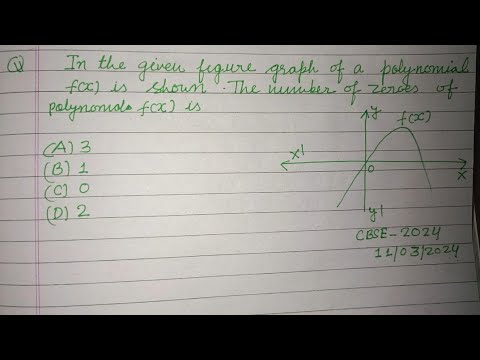 Q In the given figure graph of a polynomial
f(x) is shown. The number of zeroes of
polynomials f(x) is
(A) 3
(B) 1
(C) 0
(D) 2
y
f(x)
x'
0
x
y'
CBSE-2024
11/03/2024